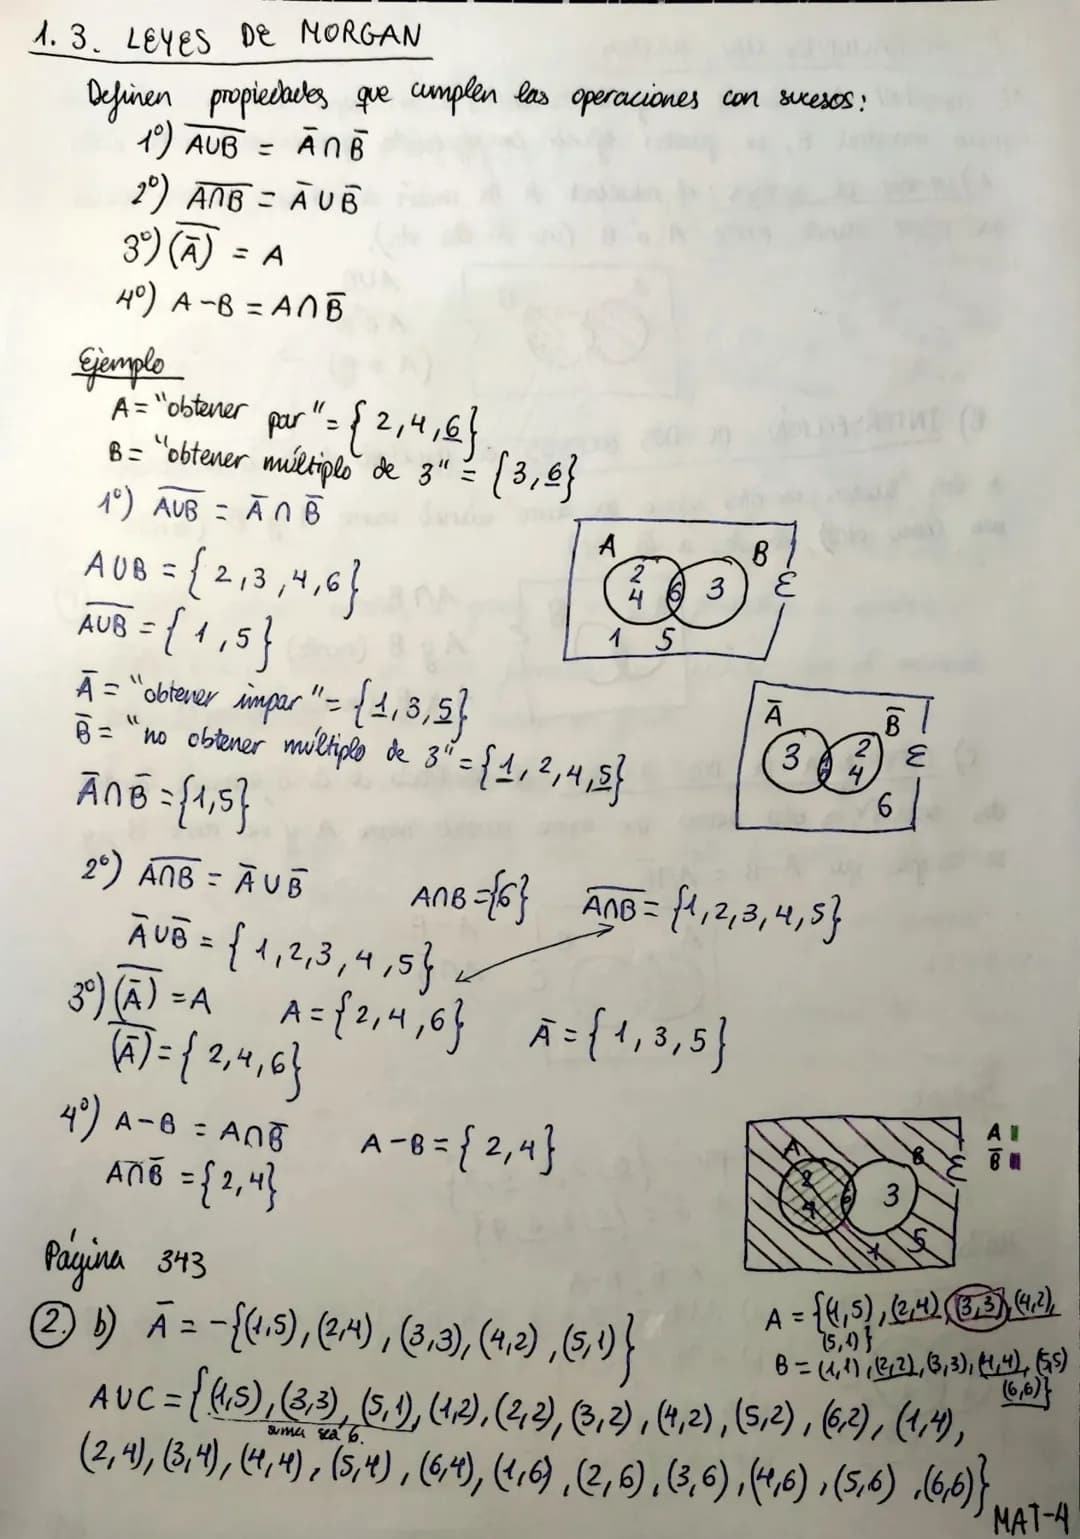 1.3. LEYES DE MORGAN
Definen propiedades que cumplen las operaciones con sucesos:
1º) A̅U̅B̅ = A̅ ∩ B̅
2º) A̅∩̅B̅ = A̅ U B̅
3º) (̅A̅)̅ = A
4º) A-B = A∩B̅
Ejemplo
A = "obtener par" = {2,4,6}
B = "obtener múltiplo de 3" = {3,6}
1º) A̅U̅B̅ = A̅ ∩ B̅
AUB = {2,3,4,6}
A̅U̅B̅ = {1,5}
A B
2 4 6 3 E
1 5
A̅ = "obtener impar" = {1,3,5}
B̅ = "no obtener múltiplo de 3" = {1,2,4,5}
A̅∩B̅ = {1,5}
A̅ B̅
3 1 5 2 4 E
6
2º) A̅∩̅B̅ = A̅ U B̅ A∩B = {6} A̅∩̅B̅ = {1,2,3,4,5}
A̅UB̅ = {1,2,3,4,5}
3º) (̅A̅)̅ = A A = {2,4,6} A̅ = {1,3,5}
(̅A̅)̅ = {2,4,6}
4º) A-B = A∩B̅ A-B = {2,4}
A∩B̅ = {2,4}
A B
2 4 6 3 E
1 5
A
B̅
Página 343
2.) b) A̅ = -{(1,5),(2,4),(3,3),(4,2),(5,1)}
A = {(1,5),(2,4),(3,3),(4,2),
(5,1)}
B = (1,1),(2,2),(3,3),(4,4),(5,5)
(6,6)}
AUC = {(1,5),(3,3),(5,1),(1,2),(2,2),(3,2),(4,2),(5,2),(6,2),(1,4),
suma sea 6.
(2,4),(3,4),(4,4),(5,4),(6,4),(1,6),(2,6),(3,6),(4,6),(5,6),(6,6)}
MAT-4